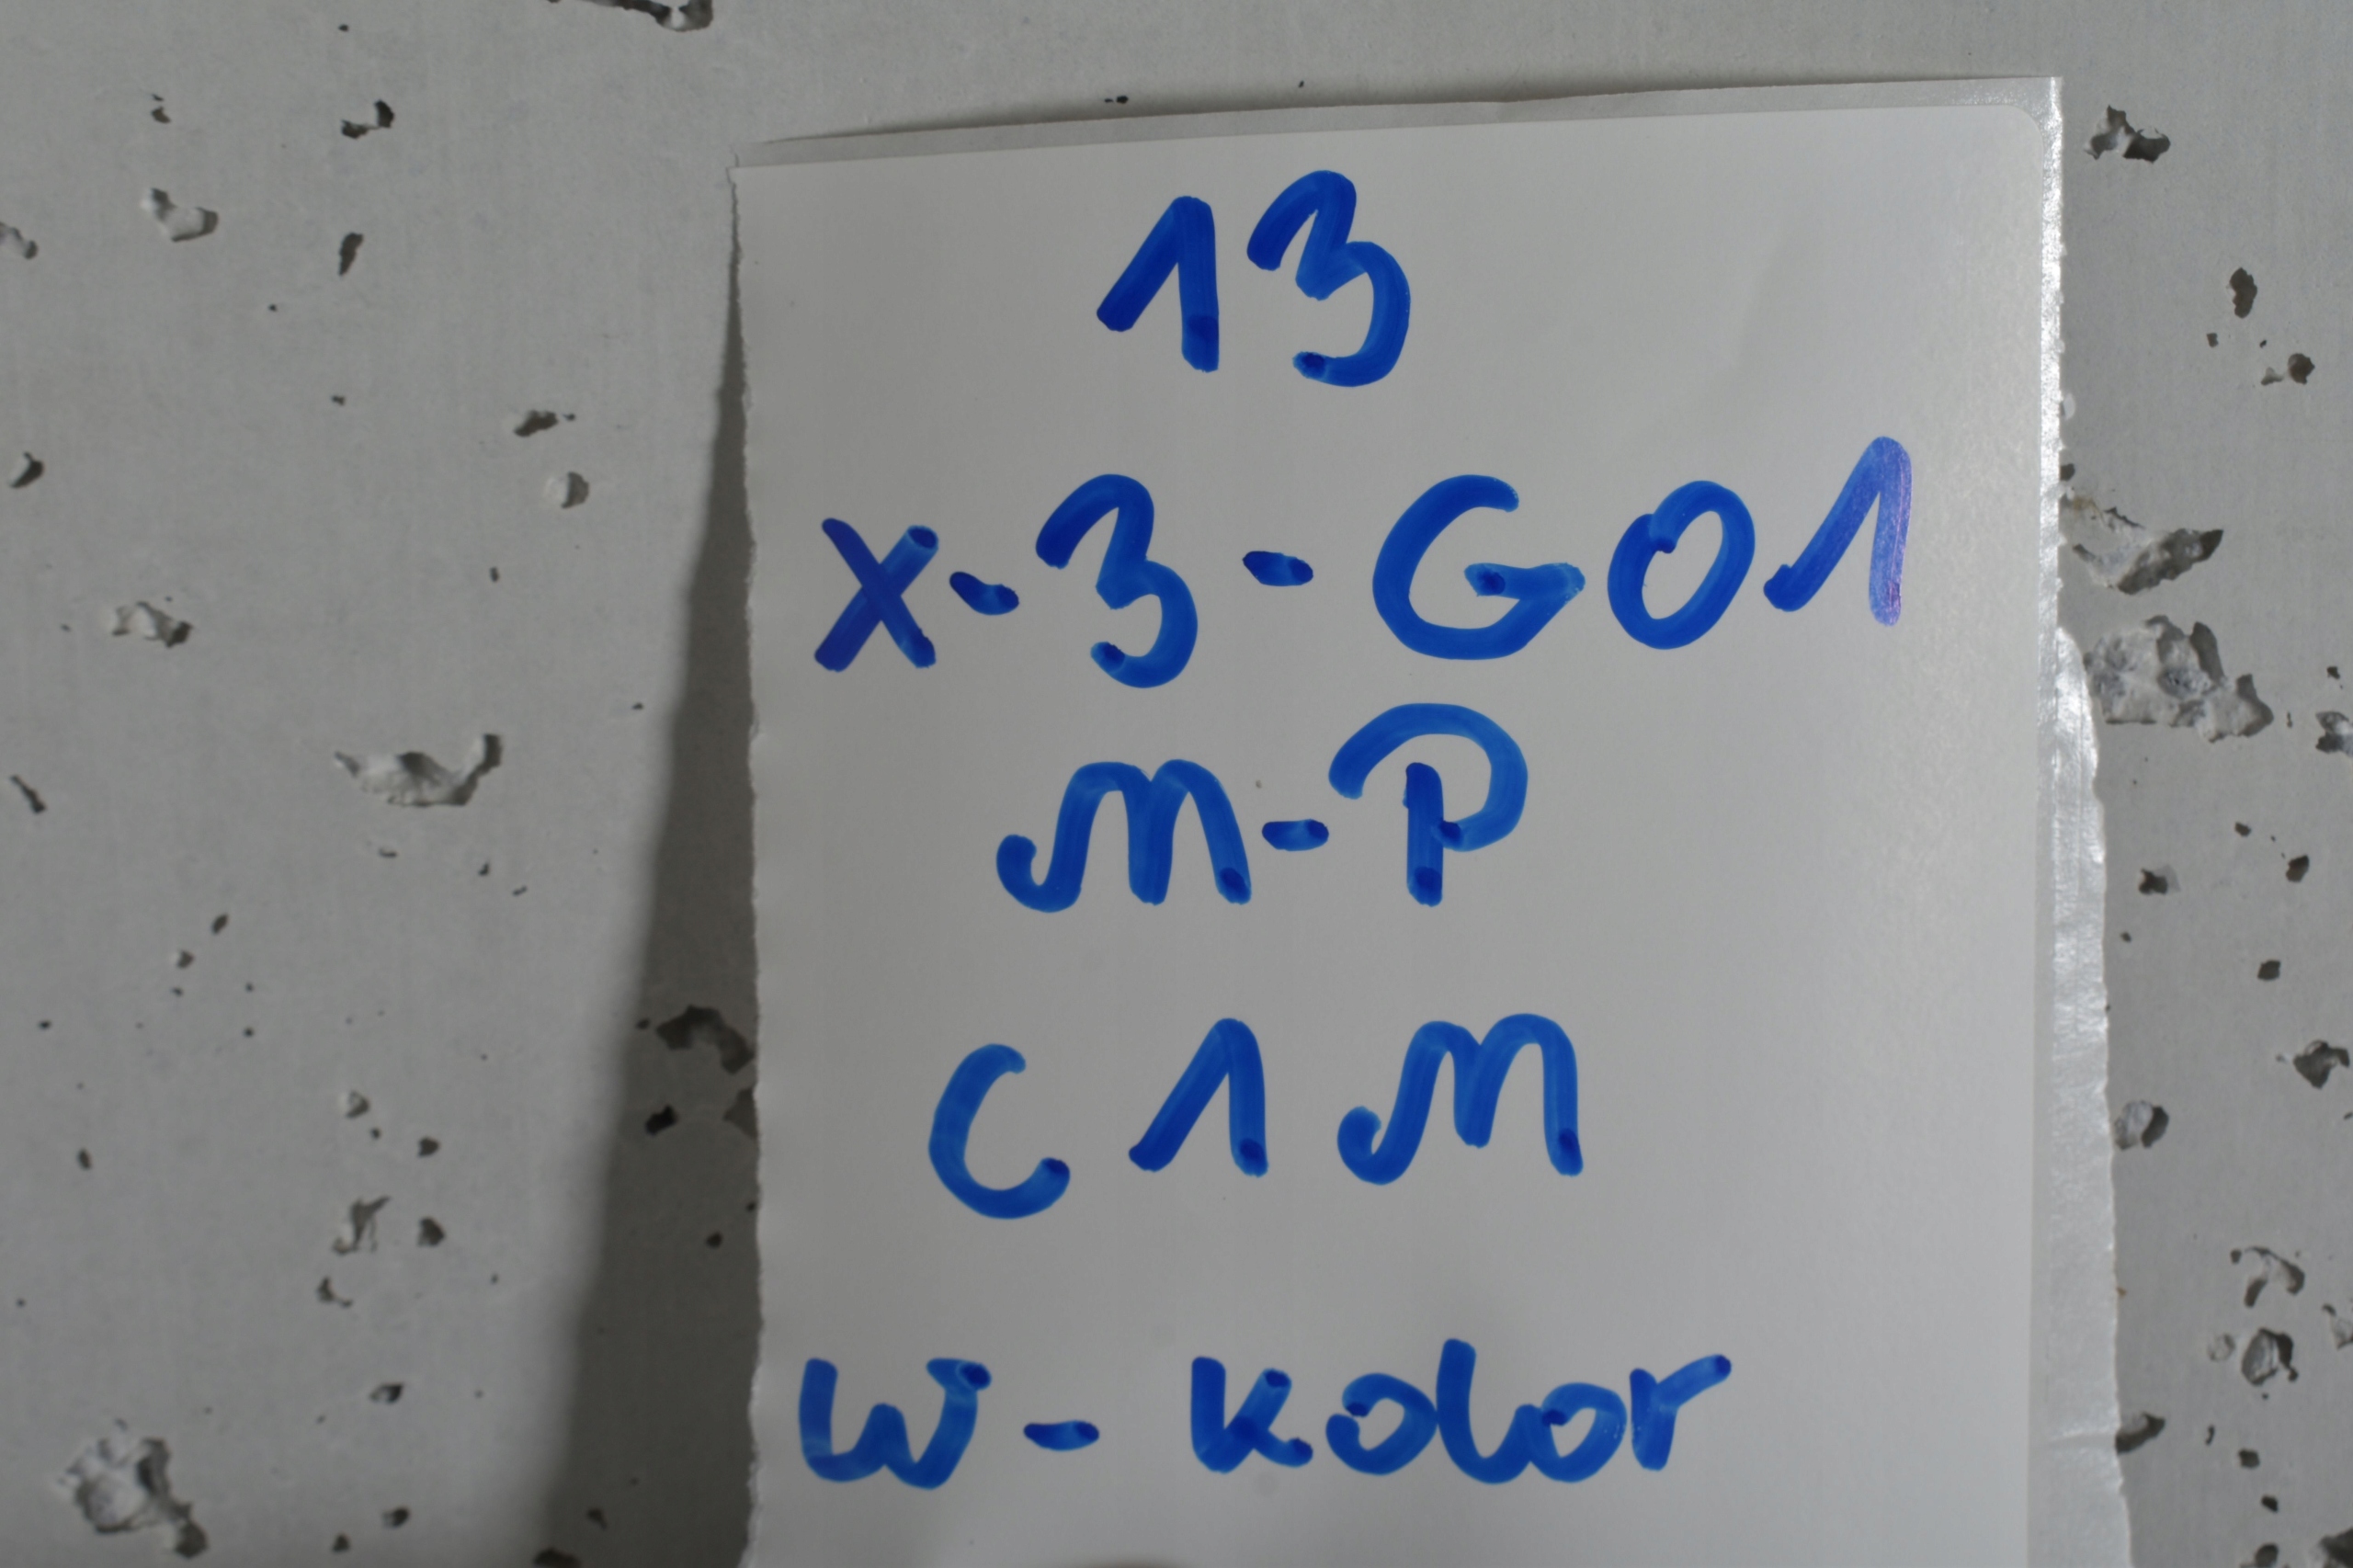 13
X-3-G01
M-P
C1M
W-Kolor